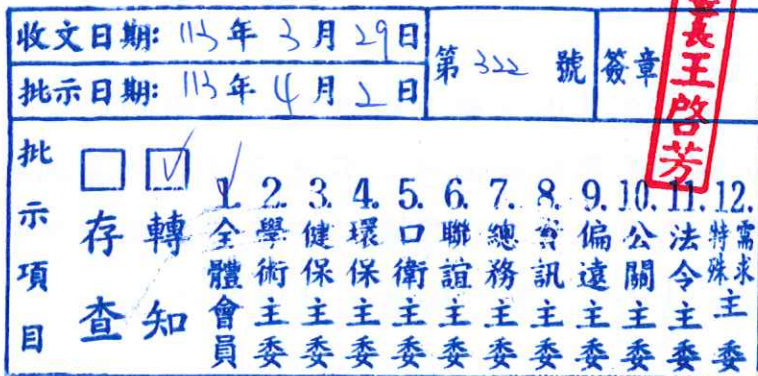 收文日期: 113年 3月 29日
批示日期: 113年 4月 2日
第 322 號
簽章
長王啓芳
批示項目
存查
轉知
1. 全體會員
2. 學術主委
3. 健保主委
4. 環保主委
5. 口衛主委
6. 聯誼主委
7. 總務主委
8. 資訊主委
9. 偏遠主委
10. 公關主委
11. 法令主委
12. 特殊需求主委